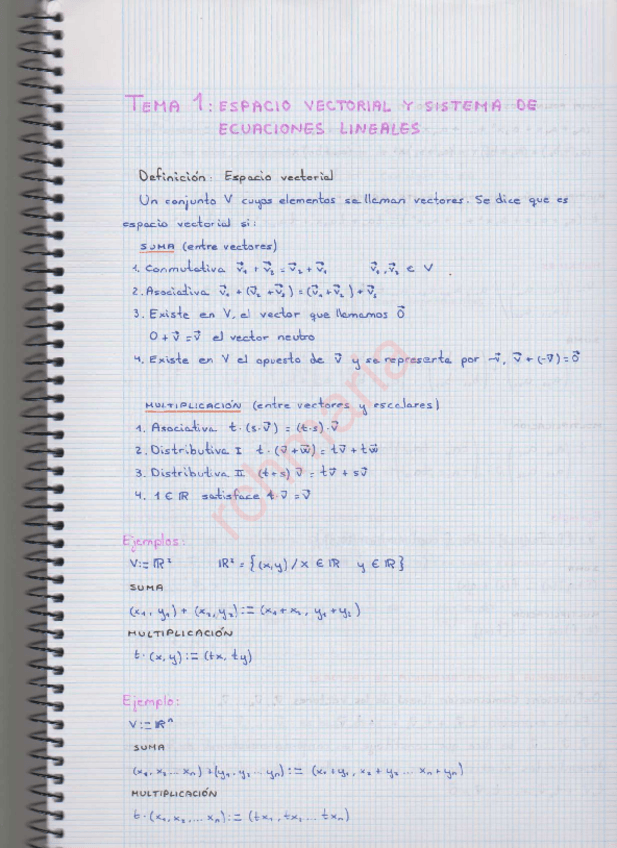 TEMA 1: ESPACIO VECTORIAL Y SISTEMA DE
ECUACIONES LINEALES
Definición: Espacio vectorial
Un conjunto V cuyos elementos se llaman vectores. Se dice que es
espacio vectorial si:
SUMA (entre vectores)
1. Conmutativa v⃗₁ + v⃗₂ = v⃗₂ + v⃗₁ v⃗₁, v⃗₂ ∈ V
2. Asociativa v⃗₁ + (v⃗₂ + v⃗₃) = (v⃗₁ + v⃗₂) + v⃗₃
3. Existe en V, el vector que llamamos 0⃗
0 + v⃗ = v⃗ el vector neutro
4. Existe en V el opuesto de v⃗ y se representa por -v⃗, v⃗ + (-v⃗) = 0⃗
MULTIPLICACIÓN (entre vectores y escalares)
1. Asociativa t · (s · v⃗) = (t · s) · v⃗
2. Distributiva I t · (v⃗ + w⃗) = tv⃗ + tw⃗
3. Distributiva II (t + s) v⃗ = tv⃗ + sv⃗
4. 1 ∈ ℝ satisface 1 · v⃗ = v⃗
rchmaria
Ejemplos:
V := ℝ² ℝ² = {(x,y) / x ∈ ℝ y ∈ ℝ}
SUMA
(x₁, y₁) + (x₂, y₂) := (x₁ + x₂, y₁ + y₂)
MULTIPLICACIÓN
t · (x, y) := (tx, ty)
Ejemplo:
V := ℝⁿ
SUMA
(x₁, x₂ ... xₙ) + (y₁, y₂ ... yₙ) := (x₁ + y₁, x₂ + y₂ ... xₙ + yₙ)
MULTIPLICACIÓN
t · (x₁, x₂, ... xₙ) := (tx₁, tx₂ ... txₙ)